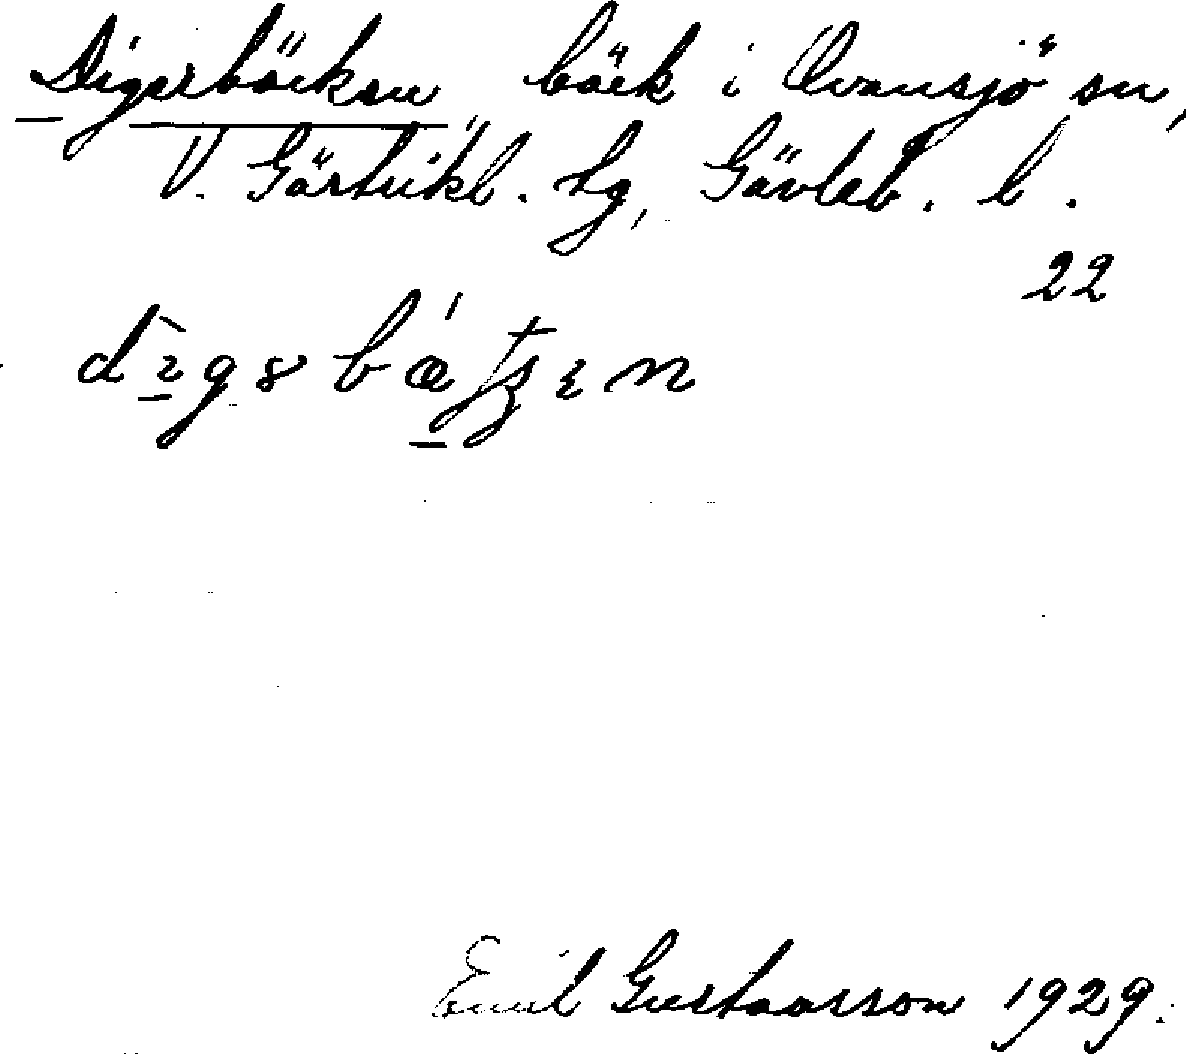 Digerbäcken bäck i Ovansjö sn,
V. Gästrikl. tg, Gävleb. l.
22
Emil Gustavsson 1929.